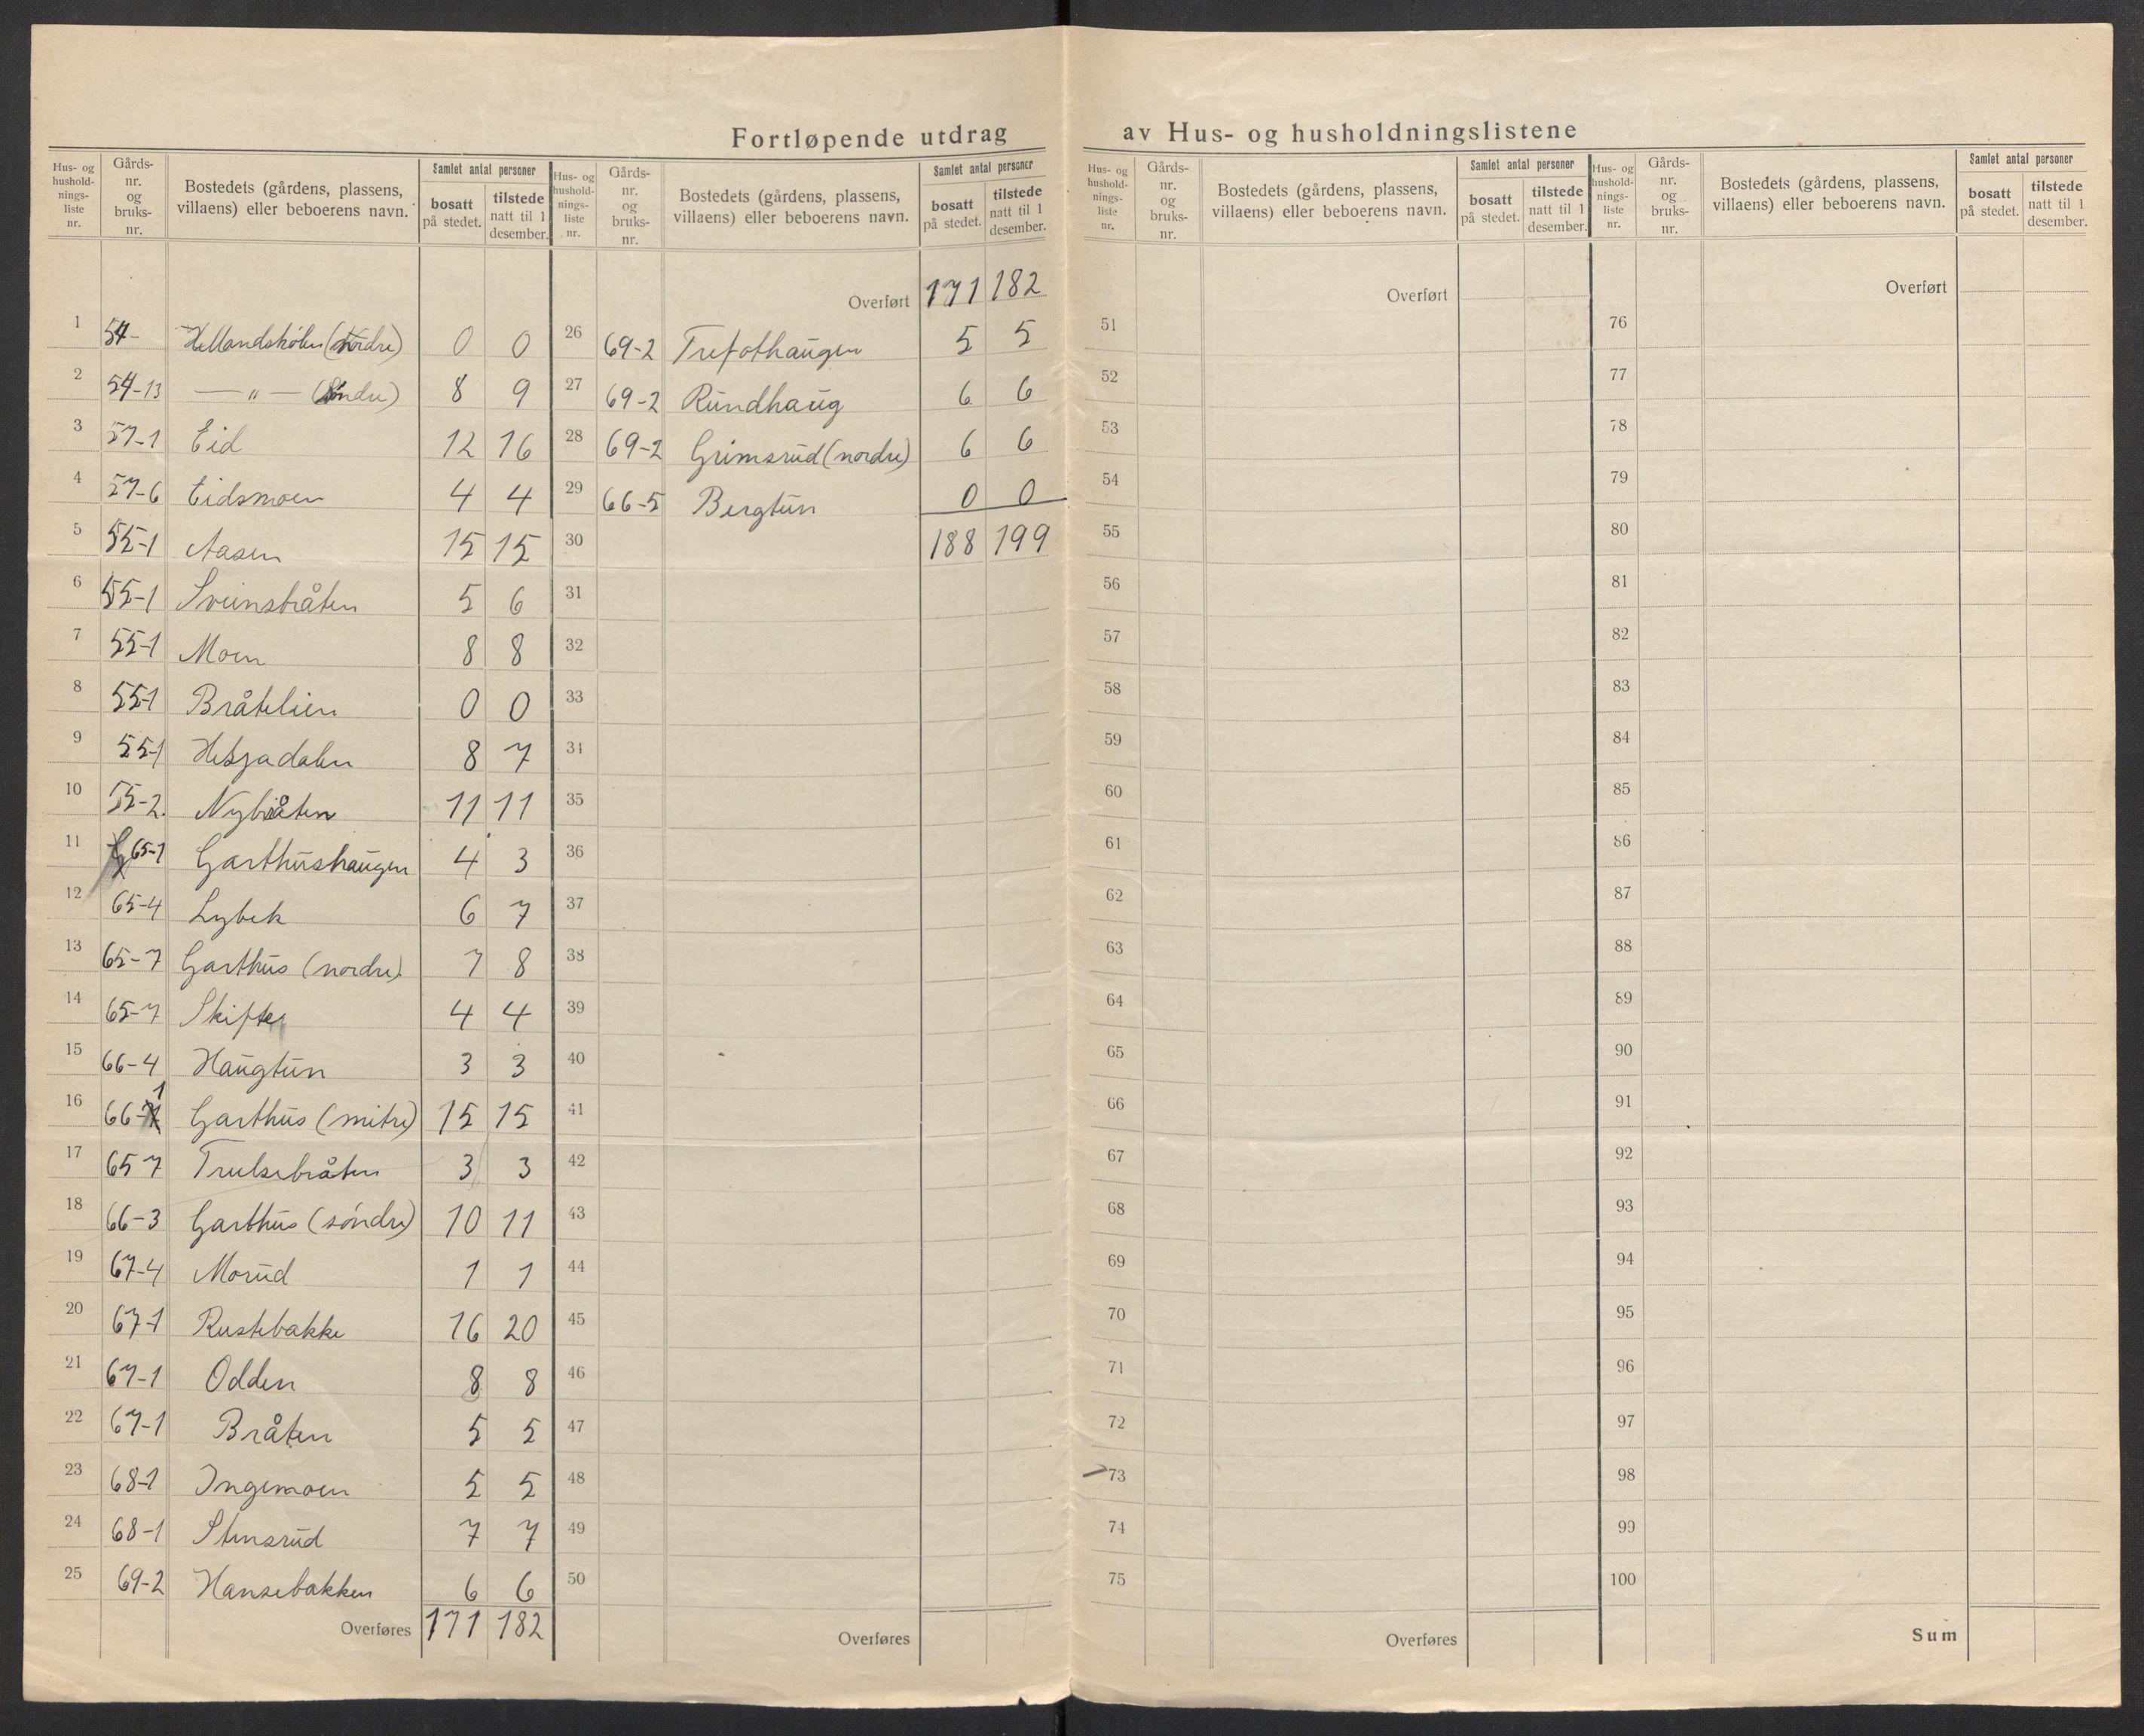 Fortløpende utdrag av Hus- og husholdningslistene
Hus- og husholdnings-liste nr. Gårds-nr. og bruks-nr. Bostedets (gårdens, plassens, villaens) eller beboerens navn. Samlet antal personer bosatt på stedet. tilstede natt til 1 desember.
1 54- Hellandskølen (nordre) 0 0
2 54-13 — „ — (Søndre) 8 9
3 57-1 Eid 12 16
4 57-6 Eidsmoen 4 4
5 55-1 Aasen 15 15
6 55-1 Sveinsbråten 5 6
7 55-1 Moen 8 8
8 55-1 Bråtelien 0 0
9 55-1 Hesjadalen 8 7
10 55-2. Nybråten 11 11
11 65-1 Garthushaugen 4 3
12 65-4 Lybek 6 7
13 65-7 Garthus (nordre) 7 8
14 65-7 Skifte 4 4
15 66-4 Haugtun 3 3
16 66-1 Garthus (mitre) 15 15
17 65 7 Trulsebråten 3 3
18 66-3 Garthus (søndre) 10 11
19 67-4 Morud 1 1
20 67-1 Rustebakke 16 20
21 67-1 Odden 8 8
22 67-1 Bråten 5 5
23 68-1 Ingemoen 5 5
24 68-1 Stensrud 7 7
25 69-2 Hansebakken 6 6
Overføres 171 182
Hus- og husholdnings-liste nr. Gårds-nr. og bruks-nr. Bostedets (gårdens, plassens, villaens) eller beboerens navn. Samlet antal personer bosatt på stedet. tilstede natt til 1 desember.
Overført 171 182
26 69-2 Trefothaugen 5 5
27 69-2 Rundhaug 6 6
28 69-2 Grimsrud (nordre) 6 6
29 66-5 Bergtun 0 0
30 188 199
31
32
33
34
35
36
37
38
39
40
41
42
43
44
45
46
47
48
49
50
Overføres
Hus- og husholdnings-liste nr. Gårds-nr. og bruks-nr. Bostedets (gårdens, plassens, villaens) eller beboerens navn. Samlet antal personer bosatt på stedet. tilstede natt til 1 desember.
Overført
51
52
53
54
55
56
57
58
59
60
61
62
63
64
65
66
67
68
69
70
71
72
73
74
75
Overføres
Hus- og husholdnings-liste nr. Gårds-nr. og bruks-nr. Bostedets (gårdens, plassens, villaens) eller beboerens navn. Samlet antal personer bosatt på stedet. tilstede natt til 1 desember.
Overført
76
77
78
79
80
81
82
83
84
85
86
87
88
89
90
91
92
93
94
95
96
97
98
99
100
Sum